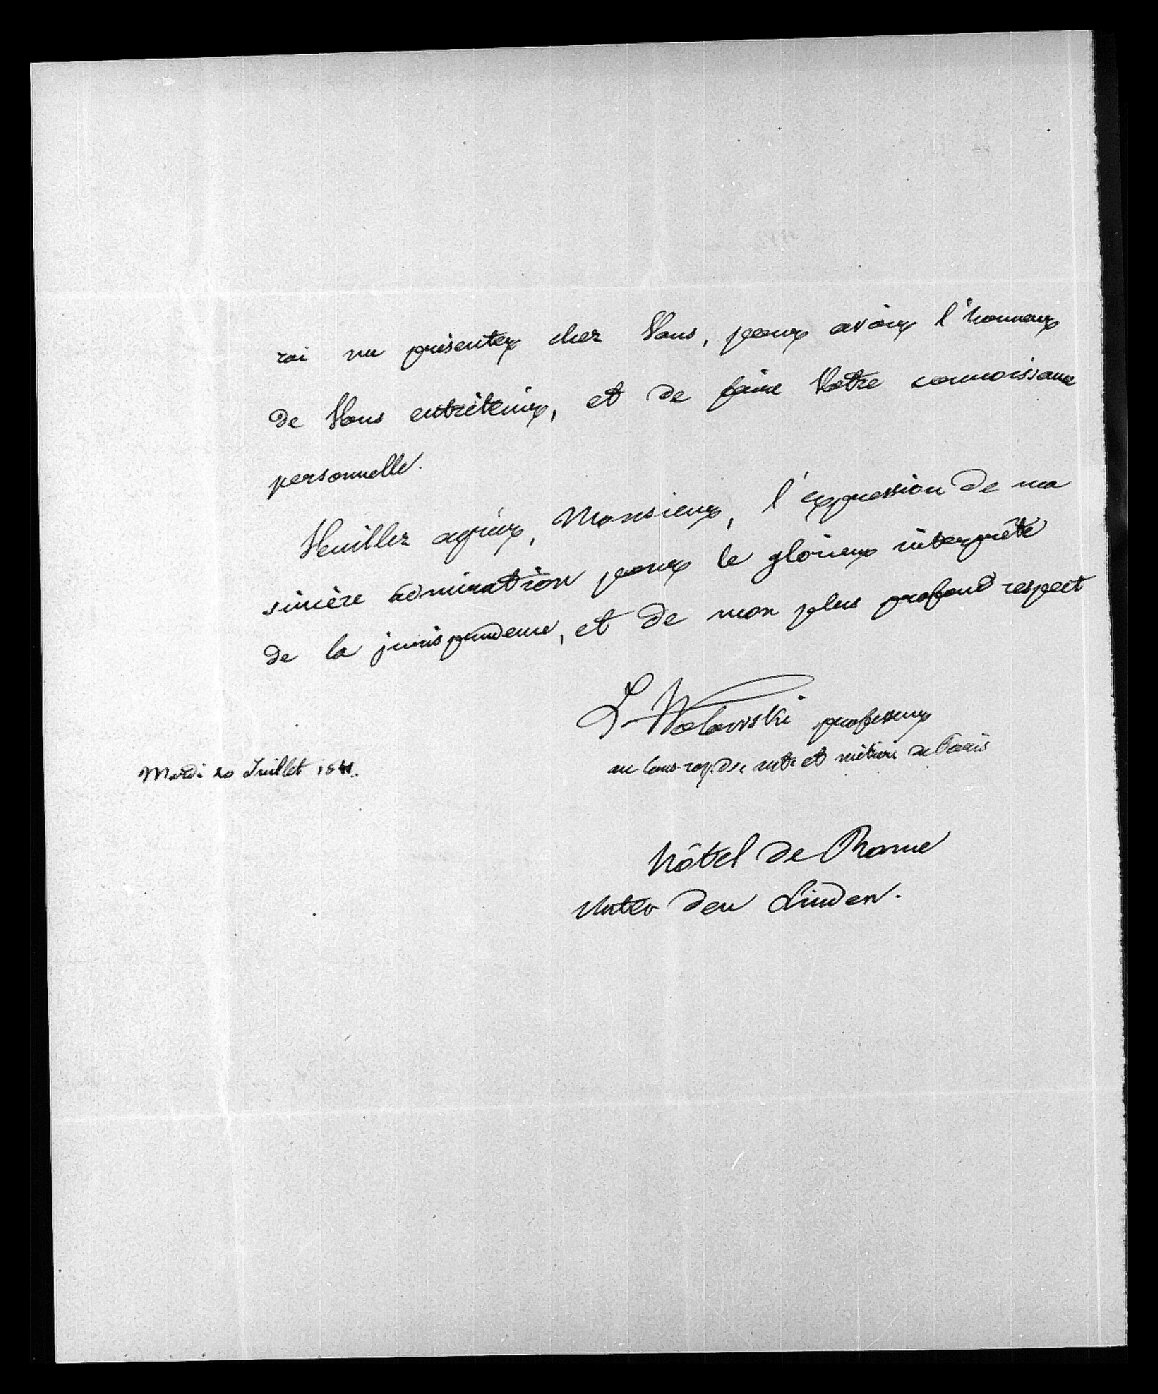 rai me présenter chez Vous, pour avoir l'honneur
de Vous entretenir, et de faire Votre connoissance
personnelle.
Veuillez agréer, Monsieur, l'expression de ma
sincère admiration pour le glorieux interprête
de la jurisprudence, et de mon plus profond respect
L Wolowski professeur
au Cons. roy. des arts et métiers de Paris
Mardi 20 Juillet 1841.
Hôtel de Rome
Unter den Linden.